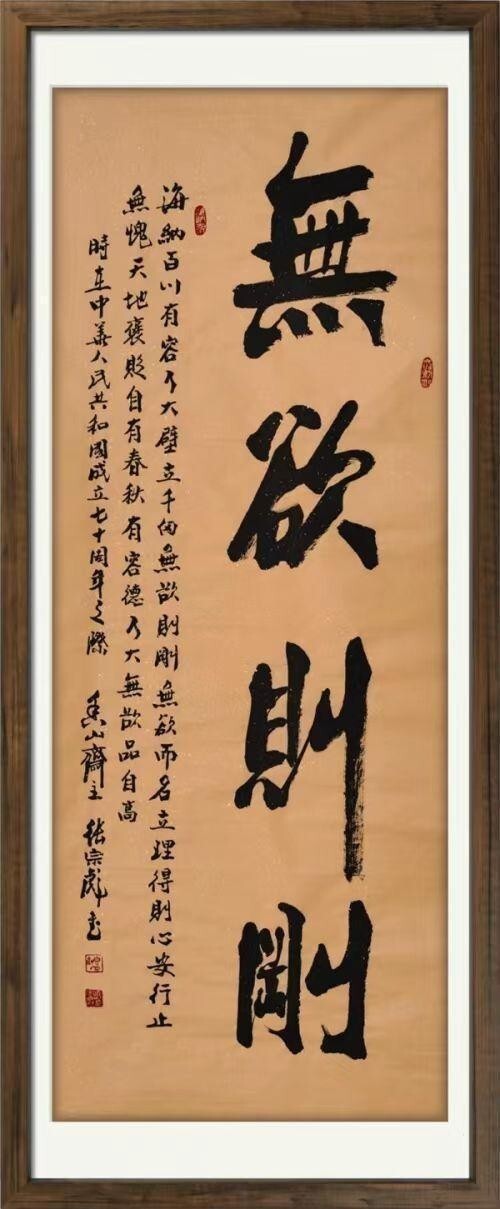 無欲則剛
海納百川有容乃大壁立千仞無欲則剛無欲而名立理得則心安行止
無愧天地褒貶自有春秋有容德乃大無欲品自高
時在中華人民共和國成立七十周年之際 山齋主 張宗彪書